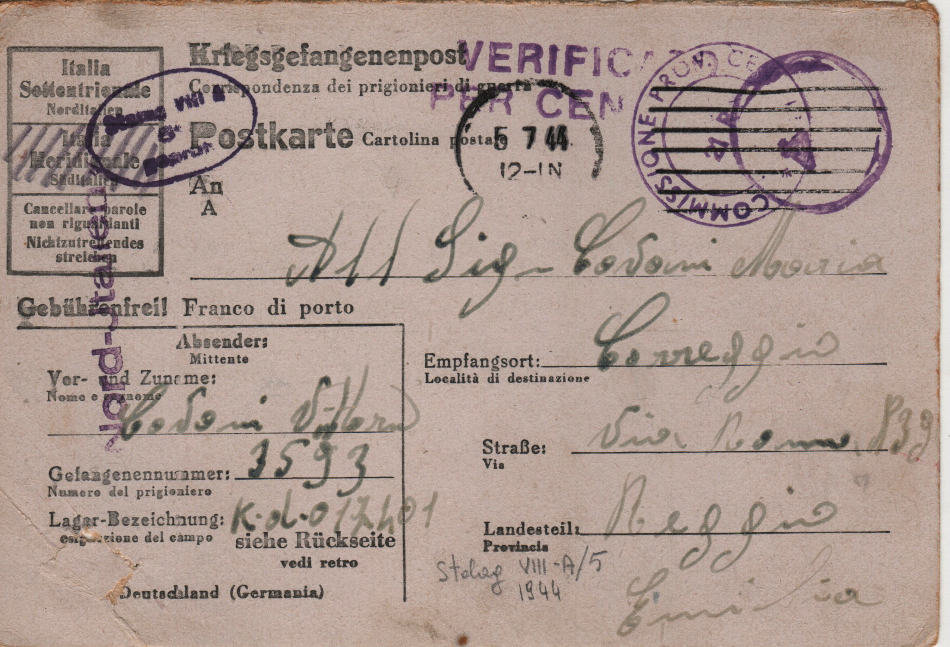 Kriegsgefangenenpost
Corrispondenza dei prigionieri di guerra
VERIFICA
PER CEN
Postkarte Cartolina postale
5 7 44
12-1N
COMMISSIONE PROV. CE
Italia
Settentrionale
Norditalien
Italia
Meridionale
Süditalien
Cancellare parole
non riguardanti
Nichtzutreffendes
streichen
Stalag VIII A
Geprüft
Nord-Italien
An
A
All Sig. Codani Maria
Gebührenfrei! Franco di porto
Absender:
Mittente
Vor- und Zuname:
Nome e cognome
Codani Vittorio
Gefangenennummer: 3593
Numero del prigioniero
Lager-Bezeichnung: K.d.o 17401
designazione del campo
siehe Rückseite
vedi retro
Deutschland (Germania)
Empfangsort: Correggio
Località di destinazione
Straße: Via Roma, N39
Via
Landesteil: Reggio
Provincia
Emilia
Stalag VIII-A/5
1944